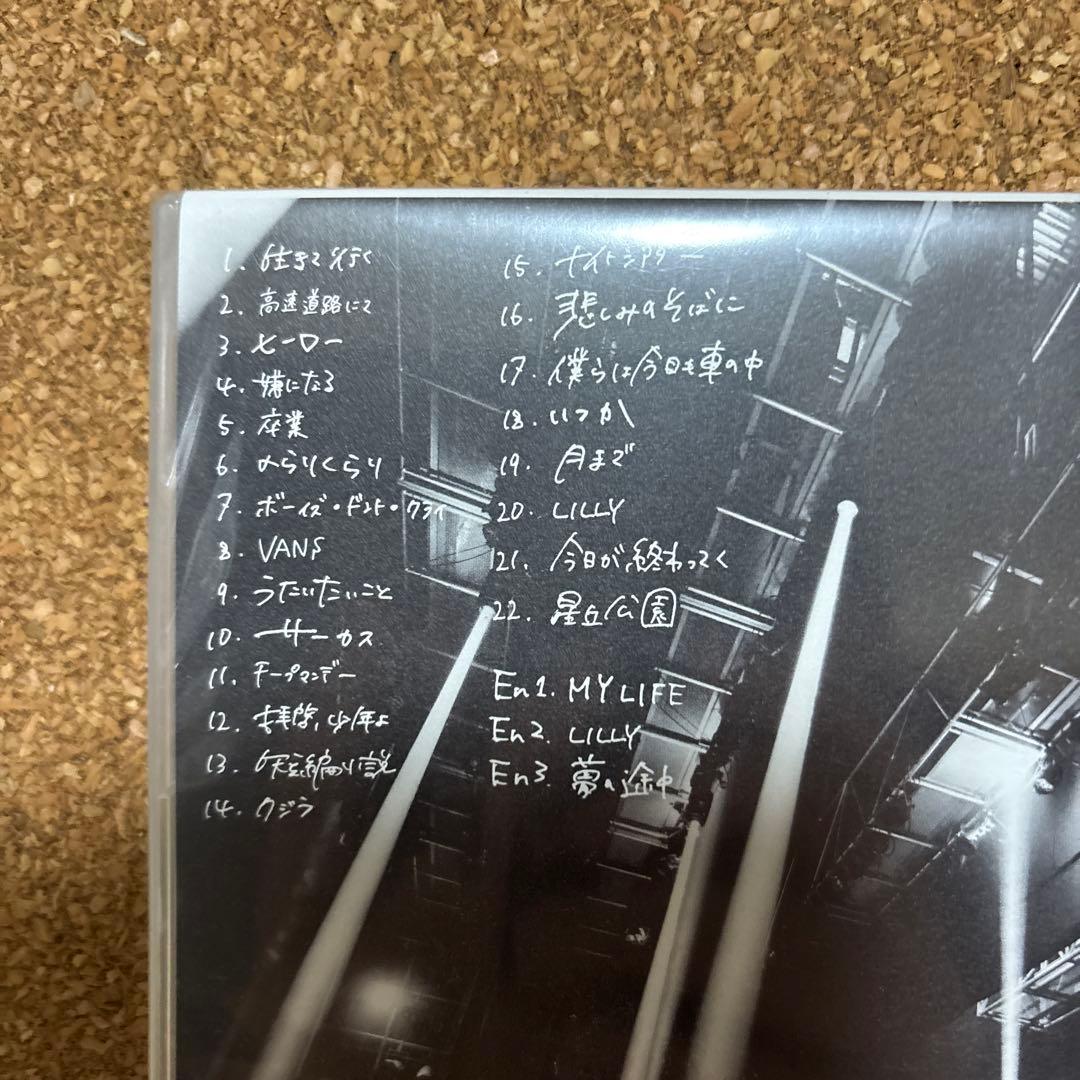 1. 生きて行く
2. 高速道路にて
3. ヒーロー
4. 嫌になる
5. 卒業
6. のらりくらり
7. ボーイズ・ドント・クライ
8. VANS
9. うたいたいこと
10. サーカス
11. チープマンデー
12. 拝啓、少年よ
13. 短編小説
14. クジラ
15. ナイトシアター
16. 悲しみのそばに
17. 僕らは今日も車の中
18. いつか
19. 月まで
20. LILLY
21. 今日が終わってく
22. 星丘公園
En1. MY LIFE
En2. LILLY
En3. 夢の途中